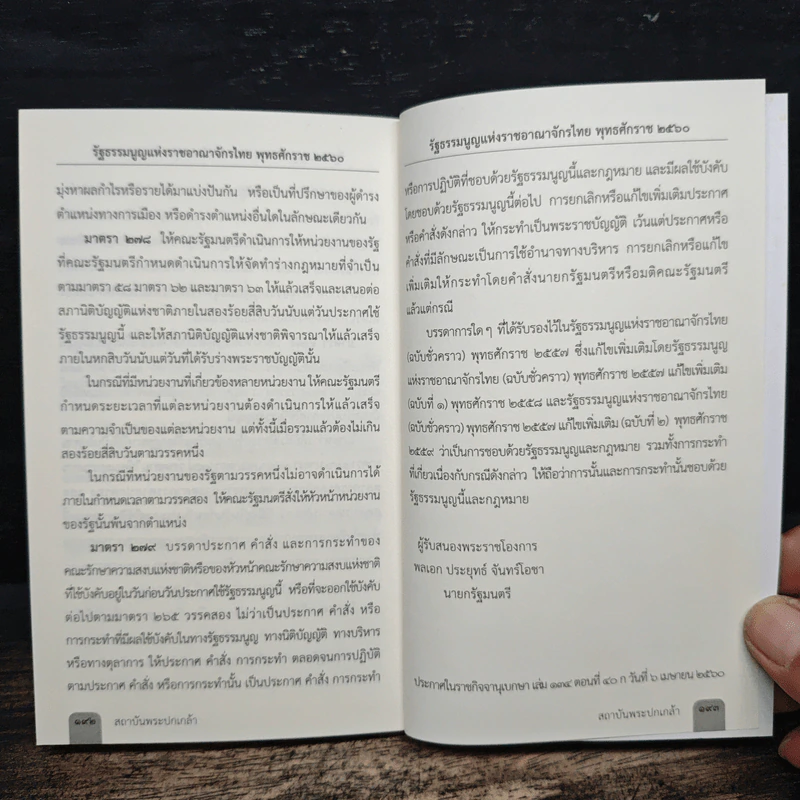 รัฐธรรมนูญแห่งราชอาณาจักรไทย พุทธศักราช ๒๕๖๐
มุ่งหาผลกำไรหรือรายได้มาแบ่งปันกัน หรือเป็นที่ปรึกษาของผู้ดำรง
ตำแหน่งทางการเมือง หรือดำรงตำแหน่งอื่นใดในลักษณะเดียวกัน
มาตรา ๒๗๘ ให้คณะรัฐมนตรีดำเนินการให้หน่วยงานของรัฐ
ที่คณะรัฐมนตรีกำหนดดำเนินการให้จัดทำร่างกฎหมายที่จำเป็น
ตามมาตรา ๕๘ มาตรา ๖๒ และมาตรา ๖๓ ให้แล้วเสร็จและเสนอต่อ
สภานิติบัญญัติแห่งชาติภายในสองร้อยสี่สิบวันนับแต่วันประกาศใช้
รัฐธรรมนูญนี้ และให้สภานิติบัญญัติแห่งชาติพิจารณาให้แล้วเสร็จ
ภายในหกสิบวันนับแต่วันที่ได้รับร่างพระราชบัญญัตินั้น
ในกรณีที่มีหน่วยงานที่เกี่ยวข้องหลายหน่วยงาน ให้คณะรัฐมนตรี
กำหนดระยะเวลาที่แต่ละหน่วยงานต้องดำเนินการให้แล้วเสร็จ
ตามความจำเป็นของแต่ละหน่วยงาน แต่ทั้งนี้เมื่อรวมแล้วต้องไม่เกิน
สองร้อยสี่สิบวันตามวรรคหนึ่ง
ในกรณีที่หน่วยงานของรัฐตามวรรคหนึ่งไม่อาจดำเนินการได้
ภายในกำหนดเวลาตามวรรคสอง ให้คณะรัฐมนตรีสั่งให้หัวหน้าหน่วยงาน
ของรัฐนั้นพ้นจากตำแหน่ง
มาตรา ๒๗๙ บรรดาประกาศ คำสั่ง และการกระทำของ
คณะรักษาความสงบแห่งชาติหรือของหัวหน้าคณะรักษาความสงบแห่งชาติ
ที่ใช้บังคับอยู่ในวันก่อนวันประกาศใช้รัฐธรรมนูญนี้ หรือที่จะออกใช้บังคับ
ต่อไปตามมาตรา ๒๖๕ วรรคสอง ไม่ว่าเป็นประกาศ คำสั่ง หรือ
การกระทำที่มีผลใช้บังคับในทางรัฐธรรมนูญ ทางนิติบัญญัติ ทางบริหาร
หรือทางตุลาการ ให้ประกาศ คำสั่ง การกระทำ ตลอดจนการปฏิบัติ
ตามประกาศ คำสั่ง หรือการกระทำนั้น เป็นประกาศ คำสั่ง การกระทำ
๑๙๒ สถาบันพระปกเกล้า
รัฐธรรมนูญแห่งราชอาณาจักรไทย พุทธศักราช ๒๕๖๐
หรือการปฏิบัติที่ชอบด้วยรัฐธรรมนูญนี้และกฎหมาย และมีผลใช้บังคับ
โดยชอบด้วยรัฐธรรมนูญนี้ต่อไป การยกเลิกหรือแก้ไขเพิ่มเติมประกาศ
หรือคำสั่งดังกล่าว ให้กระทำเป็นพระราชบัญญัติ เว้นแต่ประกาศหรือ
คำสั่งที่มีลักษณะเป็นการใช้อำนาจทางบริหาร การยกเลิกหรือแก้ไข
เพิ่มเติมให้กระทำโดยคำสั่งนายกรัฐมนตรีหรือมติคณะรัฐมนตรี
แล้วแต่กรณี
บรรดาการใด ๆ ที่ได้รับรองไว้ในรัฐธรรมนูญแห่งราชอาณาจักรไทย
(ฉบับชั่วคราว) พุทธศักราช ๒๕๕๗ ซึ่งแก้ไขเพิ่มเติมโดยรัฐธรรมนูญ
แห่งราชอาณาจักรไทย (ฉบับชั่วคราว) พุทธศักราช ๒๕๕๗ แก้ไขเพิ่มเติม
(ฉบับที่ ๑) พุทธศักราช ๒๕๕๘ และรัฐธรรมนูญแห่งราชอาณาจักรไทย
(ฉบับชั่วคราว) พุทธศักราช ๒๕๕๗ แก้ไขเพิ่มเติม (ฉบับที่ ๒) พุทธศักราช
๒๕๕๙ ว่าเป็นการชอบด้วยรัฐธรรมนูญและกฎหมาย รวมทั้งการกระทำ
ที่เกี่ยวเนื่องกับกรณีดังกล่าว ให้ถือว่าการนั้นและการกระทำนั้นชอบด้วย
รัฐธรรมนูญนี้และกฎหมาย
ผู้รับสนองพระราชโองการ
พลเอก ประยุทธ์ จันทร์โอชา
นายกรัฐมนตรี
ประกาศในราชกิจจานุเบกษา เล่ม ๑๓๔ ตอนที่ ๔๐ ก วันที่ ๖ เมษายน ๒๕๖๐
สถาบันพระปกเกล้า ๑๙๓